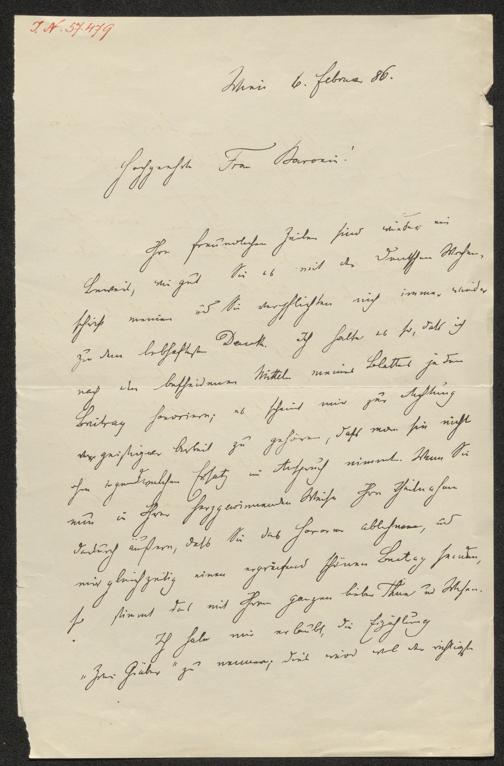 I. N. 57.479
Wien 6. Februar 86.
Hochgeehrte Frau Baronin!
Ihre freundlichen Zeilen sind wieder ein
Beweis, wie gut Sie es mit der Deutschen Wochen-
schrift meinen und Sie verpflichten mich immer wieder
zu dem lebhaftesten Dank. Ich halte es so, daß ich
nach den bescheidenen Mitteln meines Blattes jeden
Beitrag honorire; es scheint mir zur Achtung
vor geistiger Arbeit zu gehören, daß man sie nicht
ohne irgendwelchen Ersatz in Anspruch nimmt. Wenn Sie
nun in Ihrer herzgewinnenden Weise Ihre Theilnahme
dadurch äußern, daß Sie das Honorar ablehnen, und
mir gleichzeitig einen ergreifend schönen Beitrag senden,
so stimmt das mit Ihrem ganzen lieben Thun und Wesen.
Ich habe mir erlaubt, die Erzählung
"Zwei Gräber" zu nennen; dies wird wol der richtigste